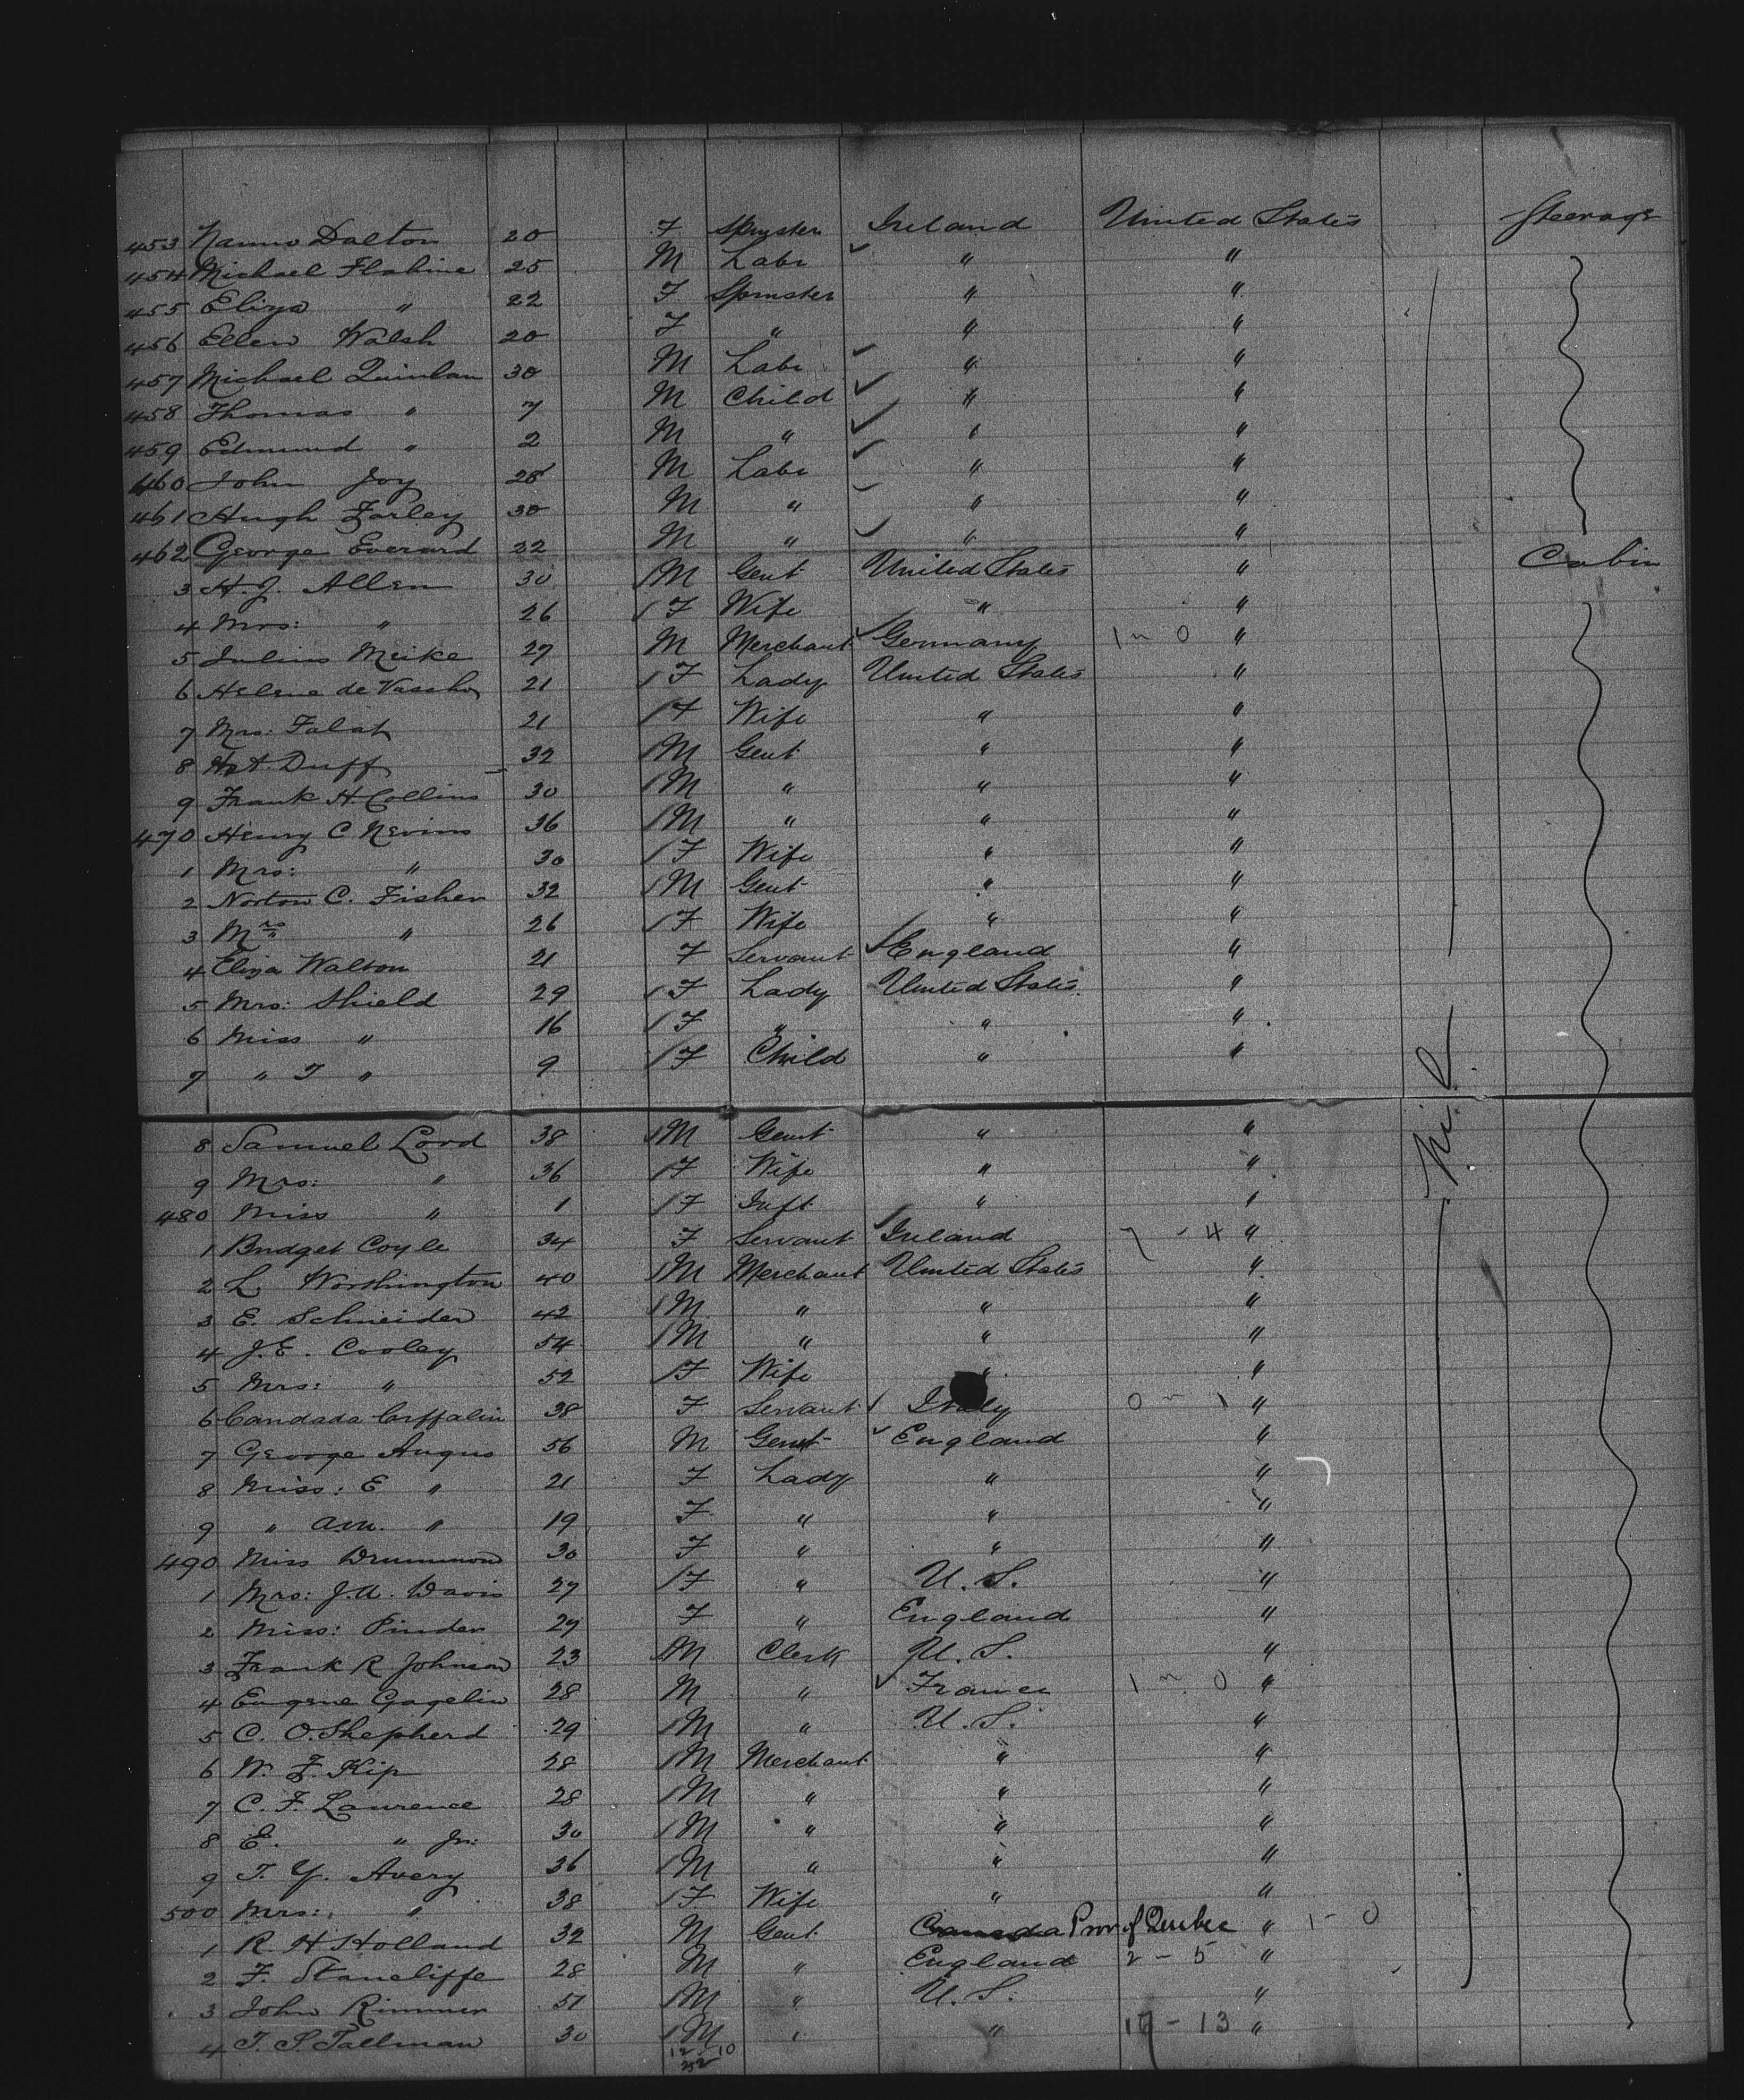 453 Nanno Dalton 20 F Spinster Ireland United States Steerage
454 Michael Flahine 25 M Labr ✓ " "
455 Eliza " 22 F Spinster " "
456 Ellen Walsh 20 F " " "
457 Michael Quinlan 30 M Labr ✓ " "
458 Thomas " 7 M Child ✓ " "
459 Edmund " 2 M " ✓ " "
460 John Joy 28 M Labr ✓ " "
461 Hugh Farley 30 M " ✓ " "
462 George Everard 22 M " ✓ " "
3 H. J. Allen 30 / M Gent United States " Cabin
4 Mrs: " 26 / F Wife " "
5 Julius Meike 27 M Merchant ✓ Germany 1 ~ 0 "
6 Helene de 21 / F Lady United States "
7 Mrs: Falat 21 / F Wife " "
8 Duff 32 / M Gent " "
9 Frank H. Collins 30 / M " " "
470 Henry C Nevins 36 / M " " "
1 Mrs: " 30 / F Wife " "
2 Norton C. Fisher 32 / M Gent " "
3 Mrs " 26 / F Wife " "
4 Eliza Walton 21 F Servant ✓ England "
5 Mrs: Shield 29 / F Lady United States "
6 Miss " 16 / F " " "
7 " J " 9 / F Child " "
Nil
8 Samuel Lord 38 / M Gent " "
9 Mrs: " 36 / F Wife " "
480 Miss " 1 / F Inft " "
1 Bridget Coyle 34 F Servant ✓ Ireland 7 - 4 "
2 L Worthington 40 / M Merchant United States "
3 E. Schneider 42 / M " " "
4 J. E. Cooley 54 / M " " "
5 Mrs: " 52 / F Wife " "
6 Candada 38 F Servant ✓ Italy 0 ~ 1 "
7 George Angus 56 M Gent ✓ England "
8 Miss: E " 21 F Lady " "
9 " " 19 F " " "
490 Miss Drummond 30 F " " "
1 Mrs: J. A. Davis 27 / F " U. S. "
2 Miss: Pinder 29 F " England "
3 Frank R Johnson 23 / M Clerk U. S. "
4 Eugene Gagelin 28 M " ✓ France 1 ~ 0 "
5 C. O. Shepherd 29 / M " U. S. "
6 W. F. Kip 28 / M Merchant " "
7 C. F. Laurence 28 / M " " "
8 E. " Jr: 30 / M " " "
9 T. Y. Avery 36 / M " " "
500 Mrs: " 38 / F Wife " "
1 R. H Holland 32 M Gent Canada Prov of Quebec " 1 - 0
2 F. Stancliffe 28 M " England 2 - 5 "
3 John Rimmer 51 / M " U. S. "
4 T. S. Tallman 30 / M " " 17 - 13 "
12 10
22